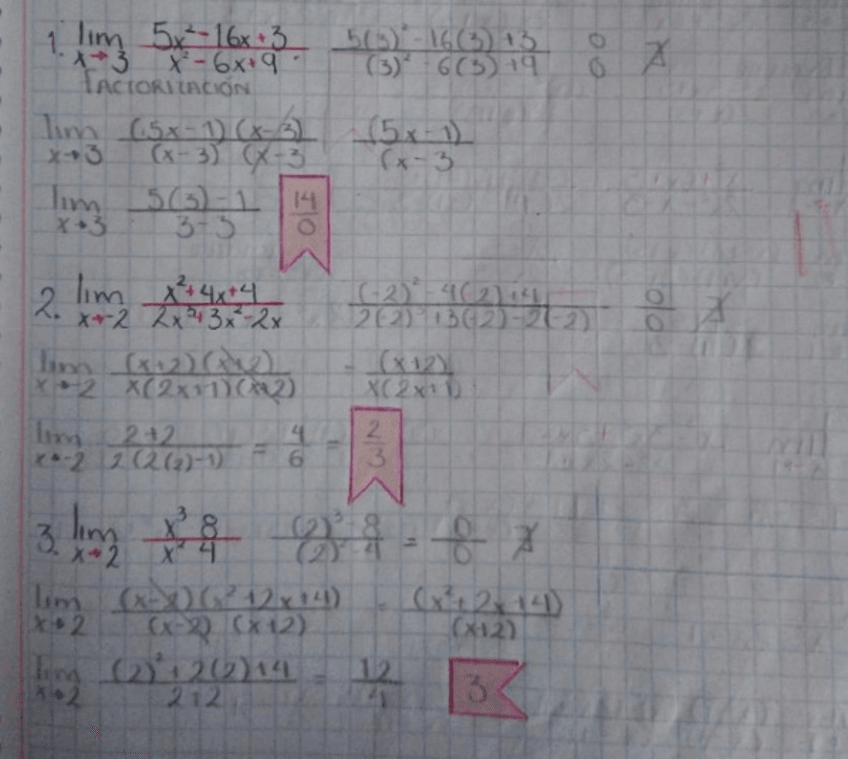 1. lim x→3 5x²-16x+3 / x²-6x+9 5(3)²-16(3)+3 / (3)²-6(3)+9 0/0
FACTORIZACIÓN
lim x→3 (5x-1)(x-3) / (x-3)(x-3 (5x-1) / (x-3
lim x→3 5(3)-1 / 3-3 14/0
2. lim x→-2 x²+4x+4 / 2x³+3x²-2x (-2)²-4(2)+4 / 2(2)³+3(-2)-2(-2) - 0/0
lim x→-2 (x+2)(x+2) / x(2x-1)(x+2) - (x+2) / x(2x+1)
lim x→-2 2+2 / 2(2(2)-1) = 4/6 = 2/3
3. lim x→2 x³ 8 / x² 4 (2)³-8 / (2)²-4 = 0/0
lim x→2 (x-2)(x²+2x+4) / (x-2)(x+2) = (x²+2x+4) / (x+2)
lim x→2 (2)²+2(2)+4 / 2+2 = 12/4 3